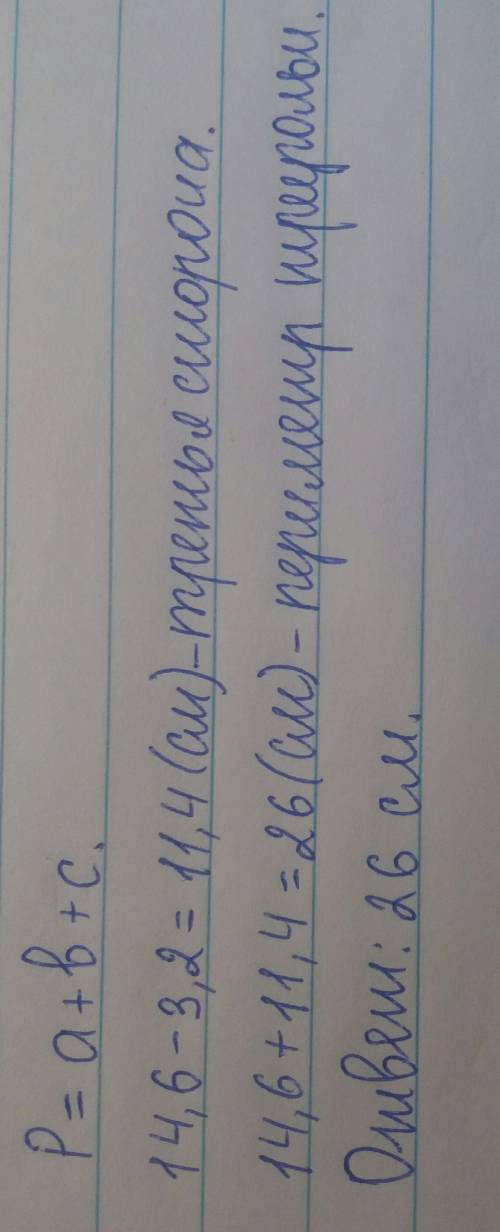 P = a + b + c.
14,6 - 3,2 = 11,4 (см) - третья сторона.
14,6 + 11,4 = 26 (см) - периметр
Ответ: 26 см.